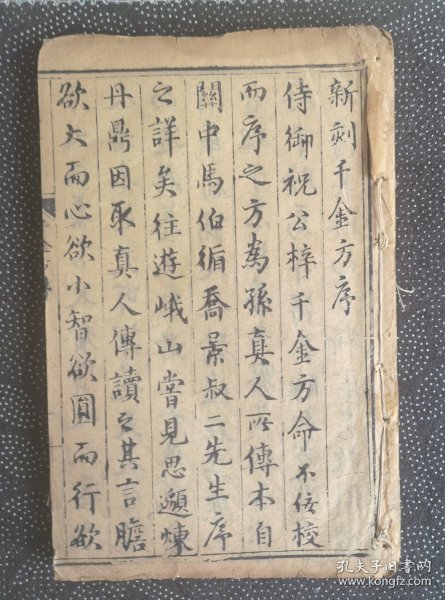 新刻千金方序
侍御祝公梓千金方命不佞校
而序之方為孫真人所傳本自
關中馬伯循喬景叔二先生序
之詳矣往遊峨山嘗見思邈煉
丹鼎因取真人傳讀之其言膽
欲大而心欲小智欲圓而行欲
孔夫子旧书网
www.kongfz.com